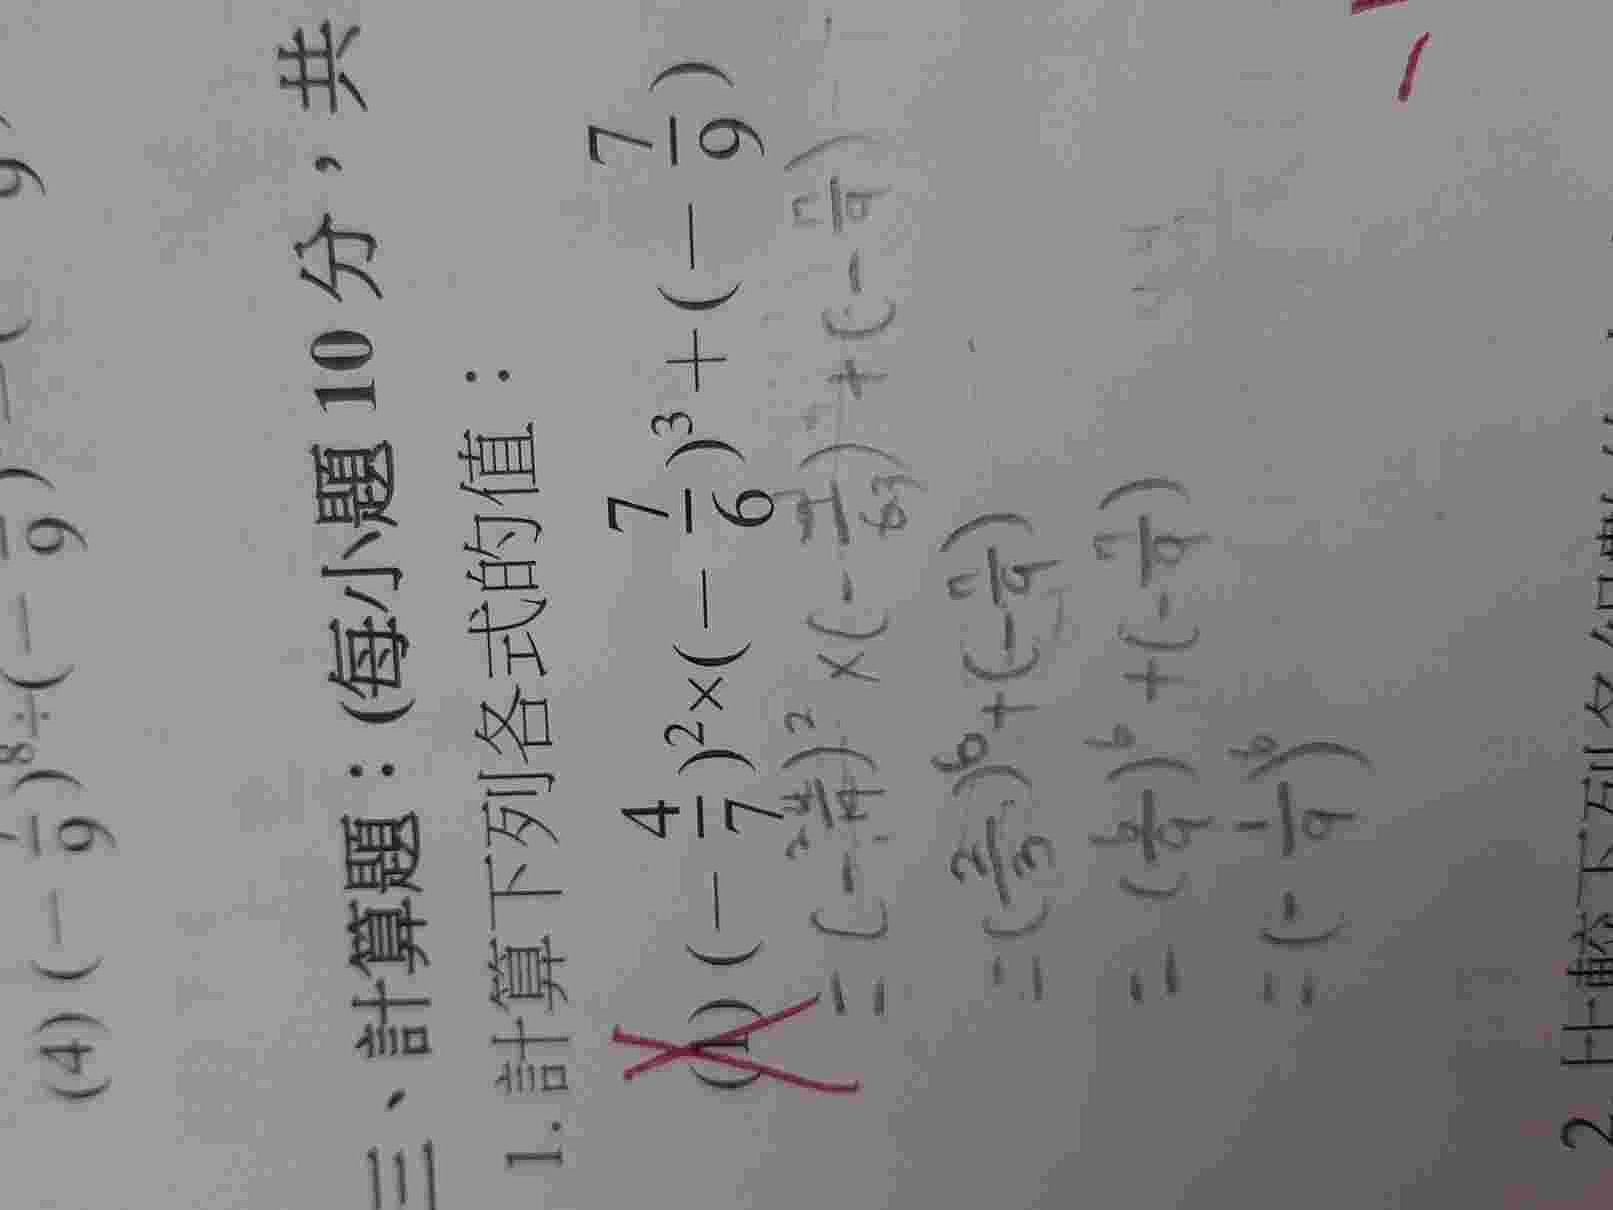 (4) (－7/9)⁸÷(－ /9)－( 9)
三、計算題：(每小題 10 分，共
1. 計算下列各式的值：
(1) (－4/7)²×(－7/6)³＋(－7/9)
= (-4/7)² ×(-7/6)³ +(-7/9)
= (2/3)⁶+(-7/9)
= (6/9)⁶ +(-7/9)
= (-1/9)⁶
2. 比較下列各